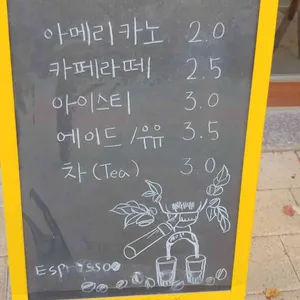 아메리카노 2.0
카페라떼 2.5
아이스티 3.0
에이드/유유 3.5
차(Tea) 3.0
Espresso